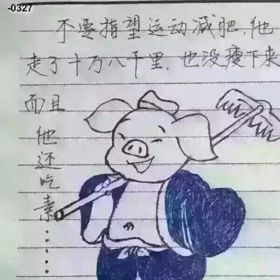 -0327
不要指望运动减肥,他
走了十万八千里,也没瘦下来
而且
他
还
吃
素......